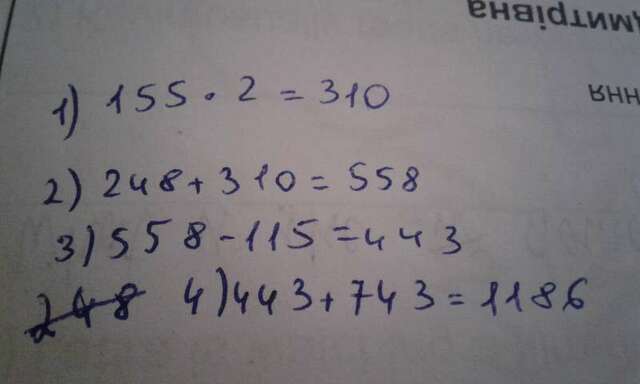 митрівна
ння
1) 155 · 2 = 310
2) 248 + 310 = 558
3) 558 - 115 = 443
248 4) 443 + 743 = 1186